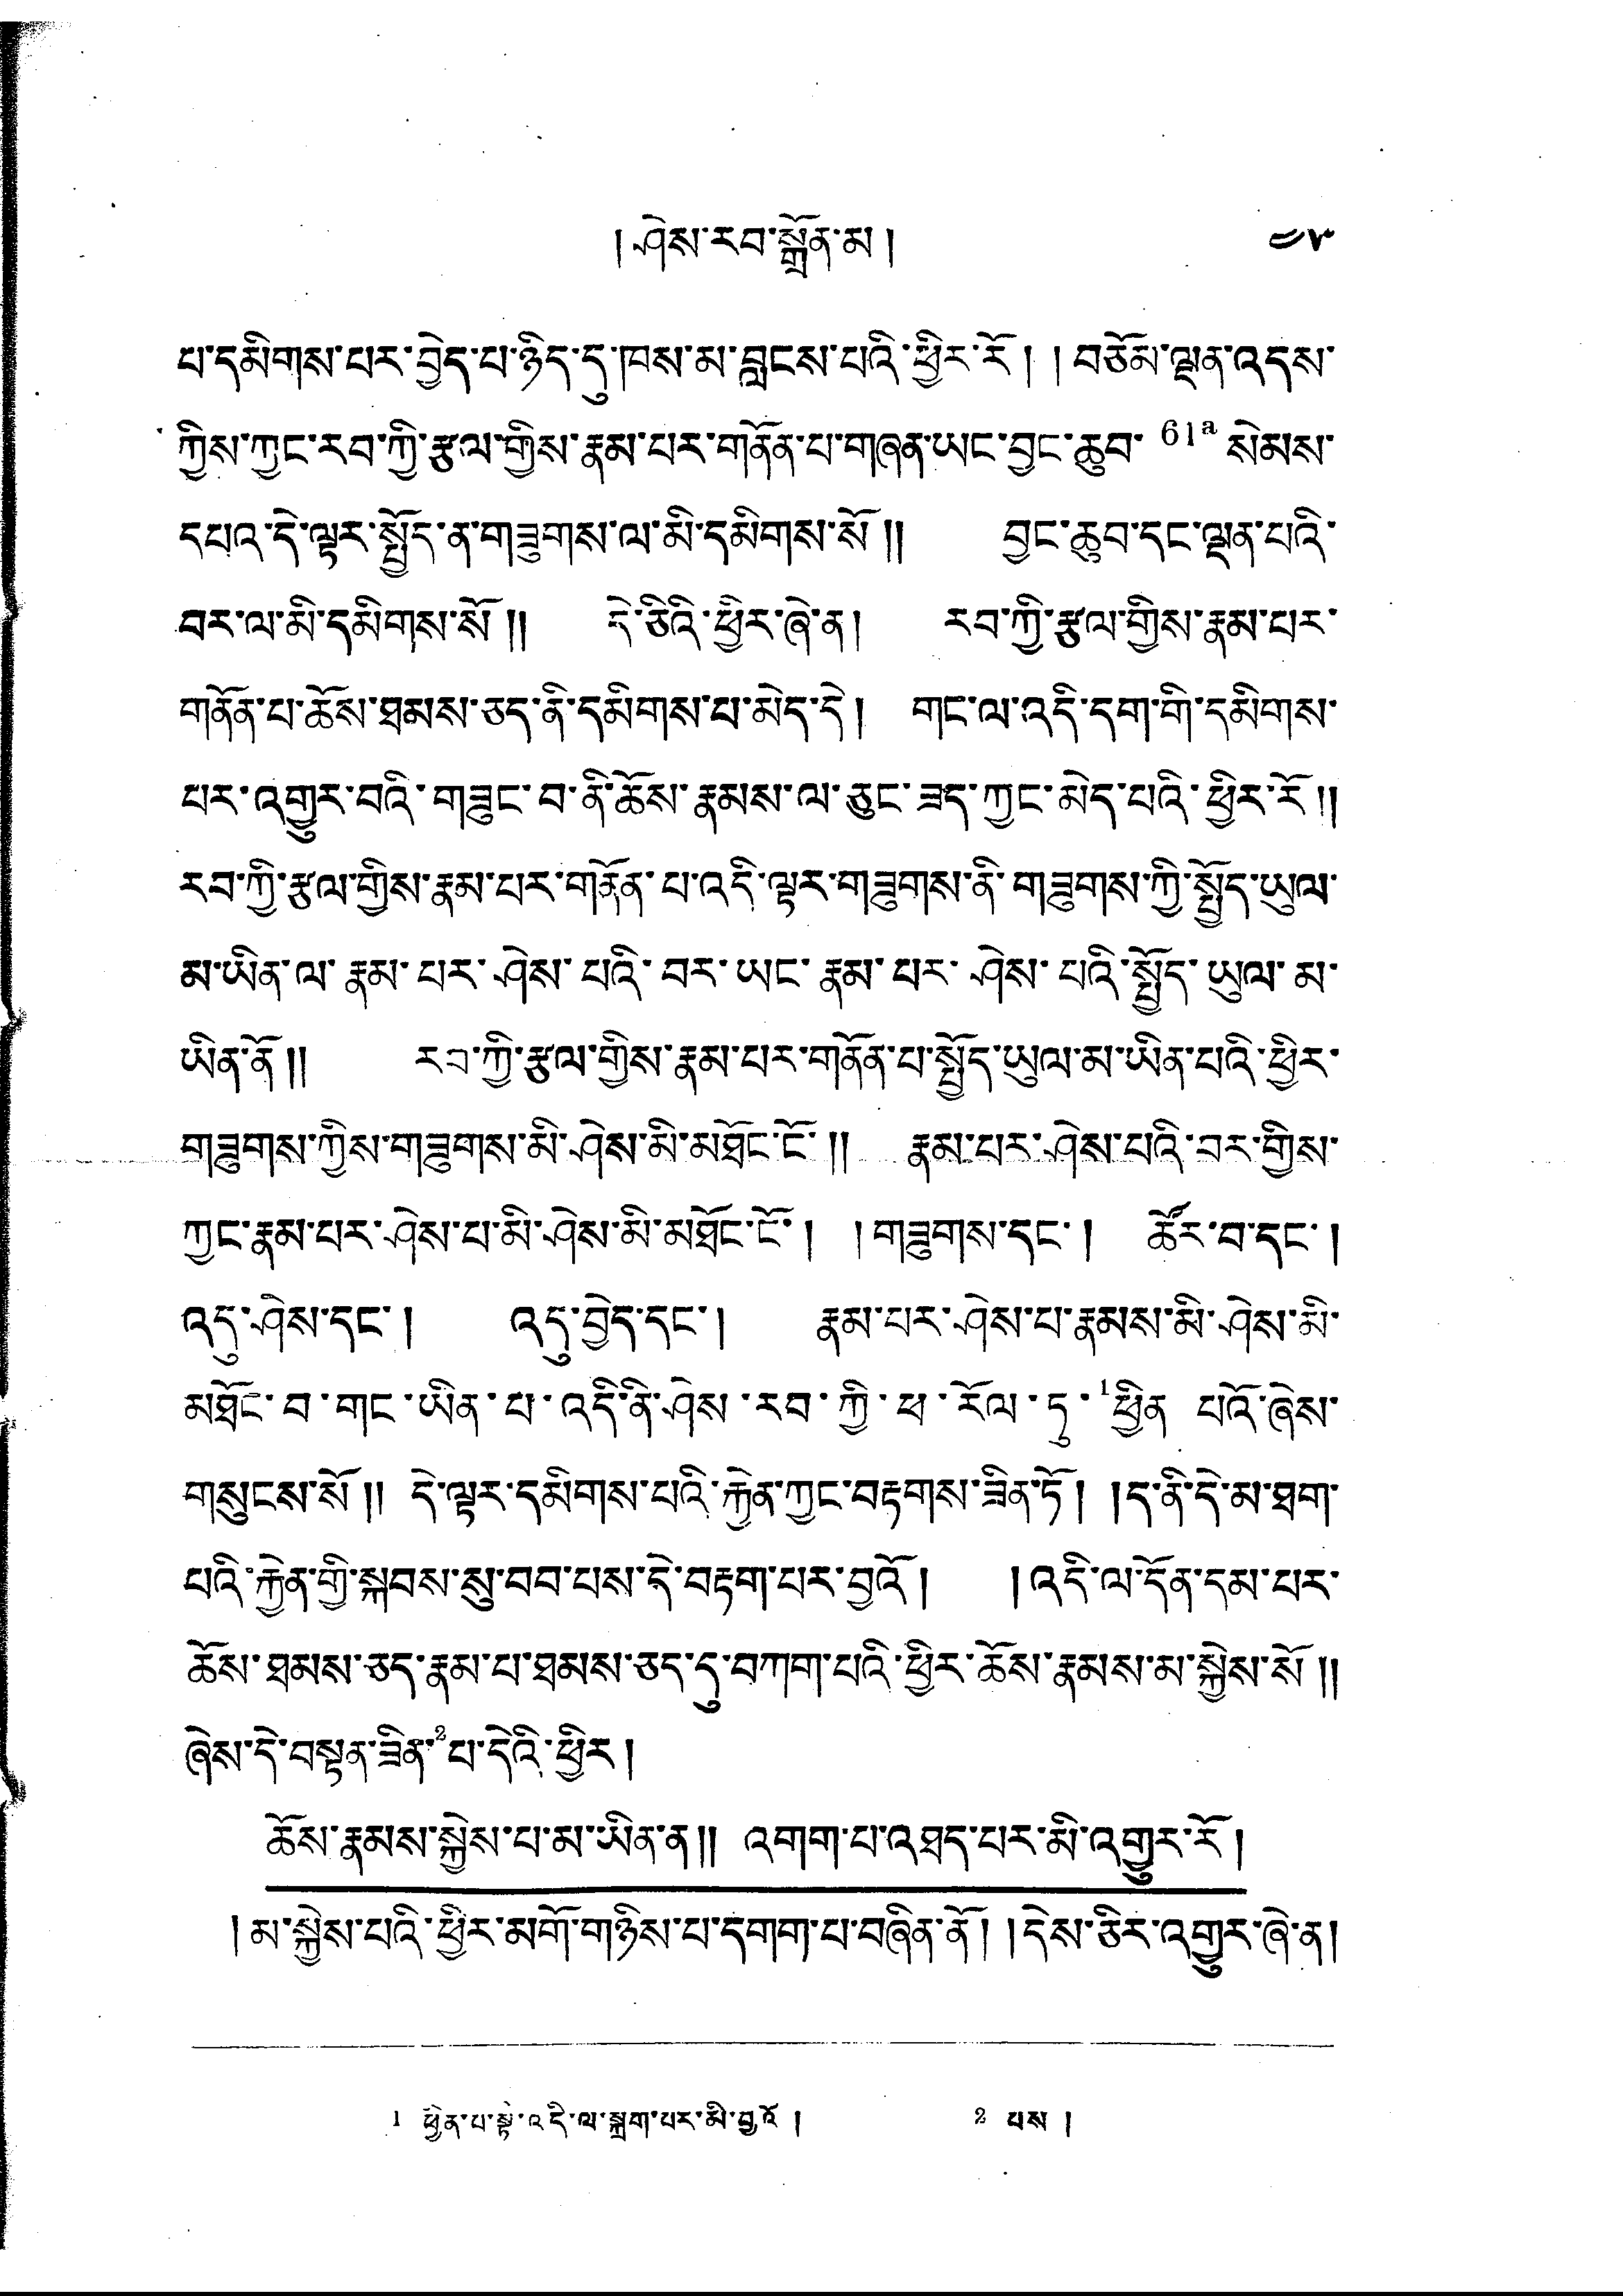 ། ཤེས་རབ་སྒྲོན་མ །
པ་དམིགས་པར་བྱེད་པ་ཉིད་དུ་ཁས་མ་བླངས་པའི་ཕྱིར་རོ། །བཅོམ་ལྡན་འདས་
ཀྱིས་ཀྱང་རབ་ཀྱི་རྩལ་གྱིས་རྣམ་པར་གནོན་པ་གཞན་ཡང་བྱང་ཆུབ་ 61a སེམས་
དཔའ་དེ་ལྟར་སྤྱོད་ན་གཟུགས་ལ་མི་དམིགས་སོ༎ བྱང་ཆུབ་དང་ལྡན་པའི་
བར་ལ་མི་དམིགས་སོ༎ དེ་ཅིའི་ཕྱིར་ཞེ་ན། རབ་ཀྱི་རྩལ་གྱིས་རྣམ་པར་
གནོན་པ་ཆོས་ཐམས་ཅད་ནི་དམིགས་པ་མེད་དེ། གང་ལ་འདི་དག་གི་དམིགས་
པར་འགྱུར་བའི་གཟུང་བ་ནི་ཆོས་རྣམས་ལ་ཅུང་ཟད་ཀྱང་མེད་པའི་ཕྱིར་རོ༎
རབ་ཀྱི་རྩལ་གྱིས་རྣམ་པར་གནོན་པ་འདི་ལྟར་གཟུགས་ནི་གཟུགས་ཀྱི་སྤྱོད་ཡུལ་
མ་ཡིན་ལ་རྣམ་པར་ཤེས་པའི་བར་ཡང་རྣམ་པར་ཤེས་པའི་སྤྱོད་ཡུལ་མ་
ཡིན་ནོ༎ རབ་ཀྱི་རྩལ་གྱིས་རྣམ་པར་གནོན་པ་སྤྱོད་ཡུལ་མ་ཡིན་པའི་ཕྱིར་
གཟུགས་ཀྱིས་གཟུགས་མི་ཤེས་མི་མཐོང་ངོ་༎ རྣམ་པར་ཤེས་པའི་བར་གྱིས་
ཀྱང་རྣམ་པར་ཤེས་པ་མི་ཤེས་མི་མཐོང་ངོ་། །གཟུགས་དང་། ཚོར་བ་དང་།
འདུ་ཤེས་དང་། འདུ་བྱེད་དང་། རྣམ་པར་ཤེས་པ་རྣམས་མི་ཤེས་མི་
མཐོང་བ་གང་ཡིན་པ་འདི་ནི་ཤེས་རབ་ཀྱི་ཕ་རོལ་ཏུ་ 1ཕྱིན པའོ་ཞེས་
གསུངས་སོ༎ དེ་ལྟར་དམིགས་པའི་རྐྱེན་ཀྱང་བརྟགས་ཟིན་ཏོ། །ད་ནི་དེ་མ་ཐག་
པའི་རྐྱེན་གྱི་སྐབས་སུ་བབ་པས་དེ་བརྟག་པར་བྱའོ། །འདི་ལ་དོན་དམ་པར་
ཆོས་ཐམས་ཅད་རྣམ་པ་ཐམས་ཅད་དུ་བཀག་པའི་ཕྱིར་ཆོས་རྣམས་མ་སྐྱེས་སོ༎
ཞེས་དེ་བསྟན་ཟིན་2པ་དེའི་ཕྱིར།
ཆོས་རྣམས་སྐྱེས་པ་མ་ཡིན་ན༎ འགག་པ་འཐད་པར་མི་འགྱུར་རོ།
།མ་སྐྱེས་པའི་ཕྱིར་མགོ་གཉིས་པ་དགག་པ་བཞིན་ནོ། །དེས་ཅིར་འགྱུར་ཞེ་ན།
1 ཕྱིན་པ་སྟེ་འདི་ལ་སྐྲག་པར་མི་བྱའོ། 2 པས །